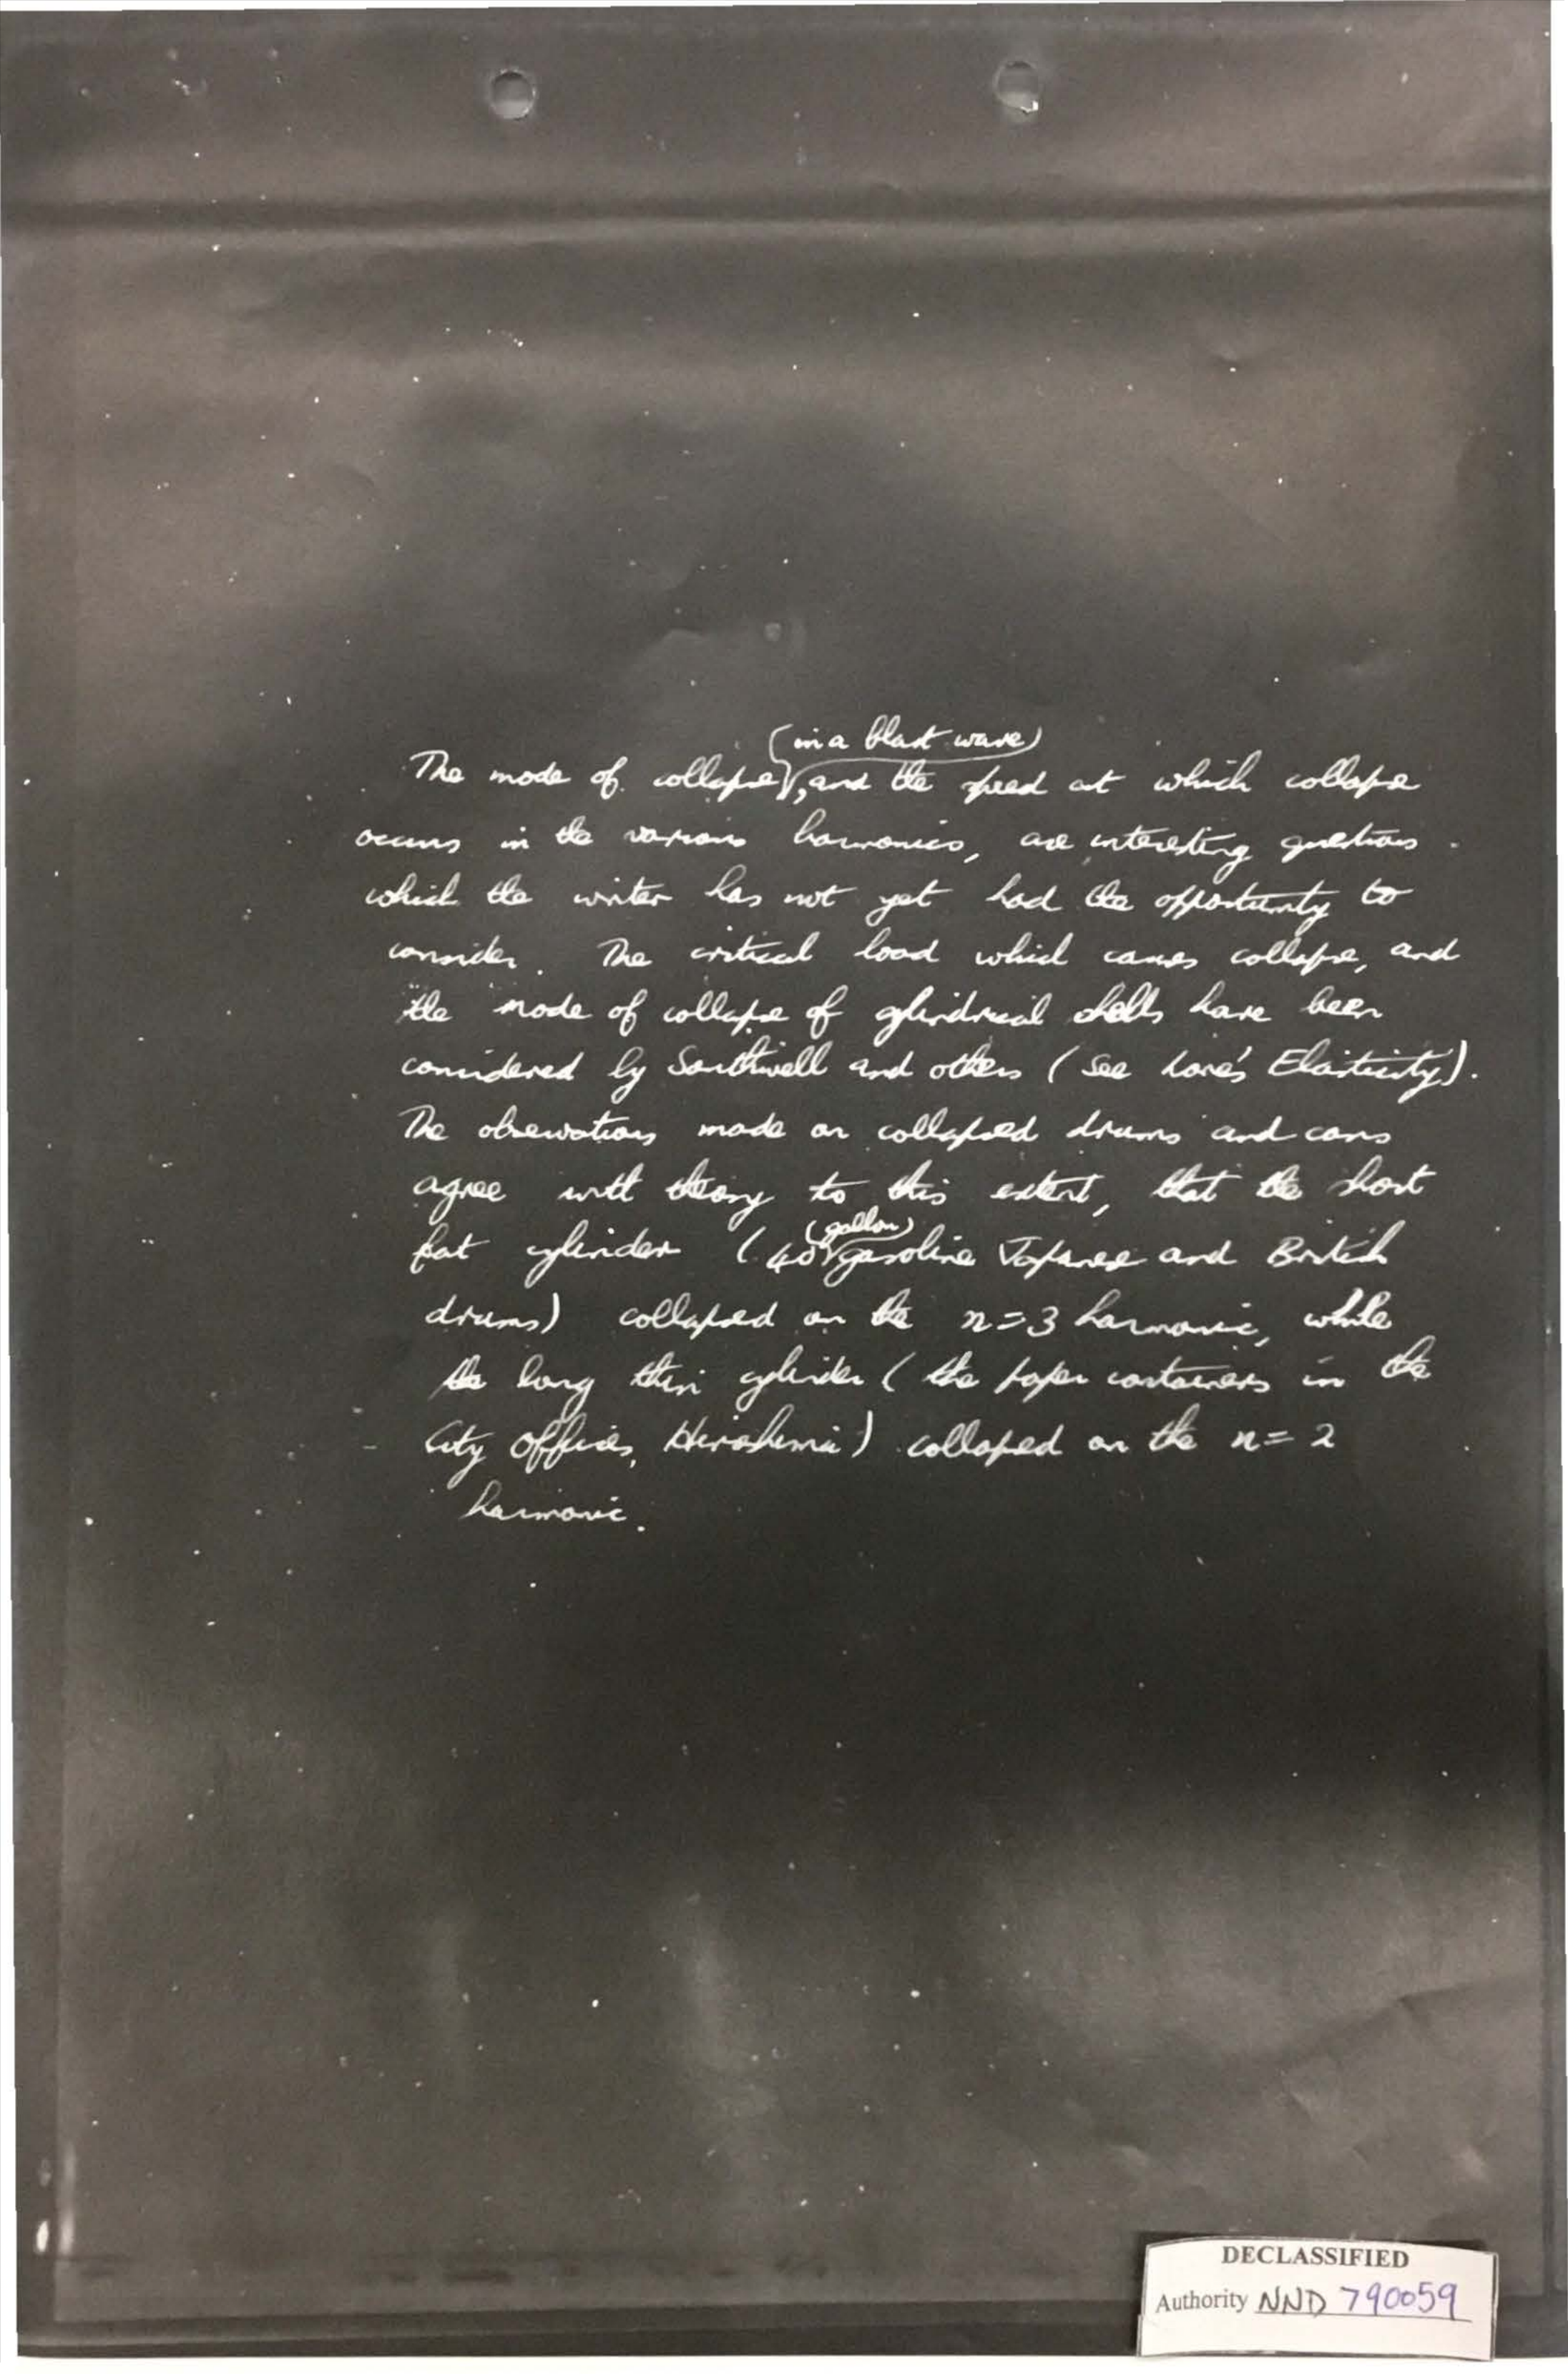 (in a blast wave)
The mode of collapse, and the speed at which collapse
occurs in the various harmonics, are interesting questions
which the writer has not yet had the opportunity to
consider. The critical load which causes collapse, and
the mode of collapse of cylindrical shells have been
considered by Southwell and others (see Love's Elasticity).
The observations made on collapsed drums and cans
agree with theory to this extent, that the short
(gallon)
fat cylinder (40 gasoline Japanese and British
drums) collapsed on the n=3 harmonic, while
the long thin cylinder (the paper containers in the
City Offices, Hiroshima) collapsed on the n=2
harmonic.
DECLASSIFIED
Authority NND 790059